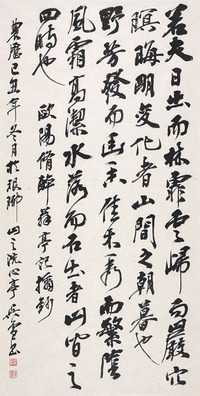 若夫日出而林霏開雲歸而巖穴
暝晦明變化者山間之朝暮也
野芳發而幽香佳木秀而繁陰
風霜高潔水落而石出者山間之
四時也 歐陽脩醉翁亭記摘鈔
農曆己丑年冬月於琅琊山之洗心亭